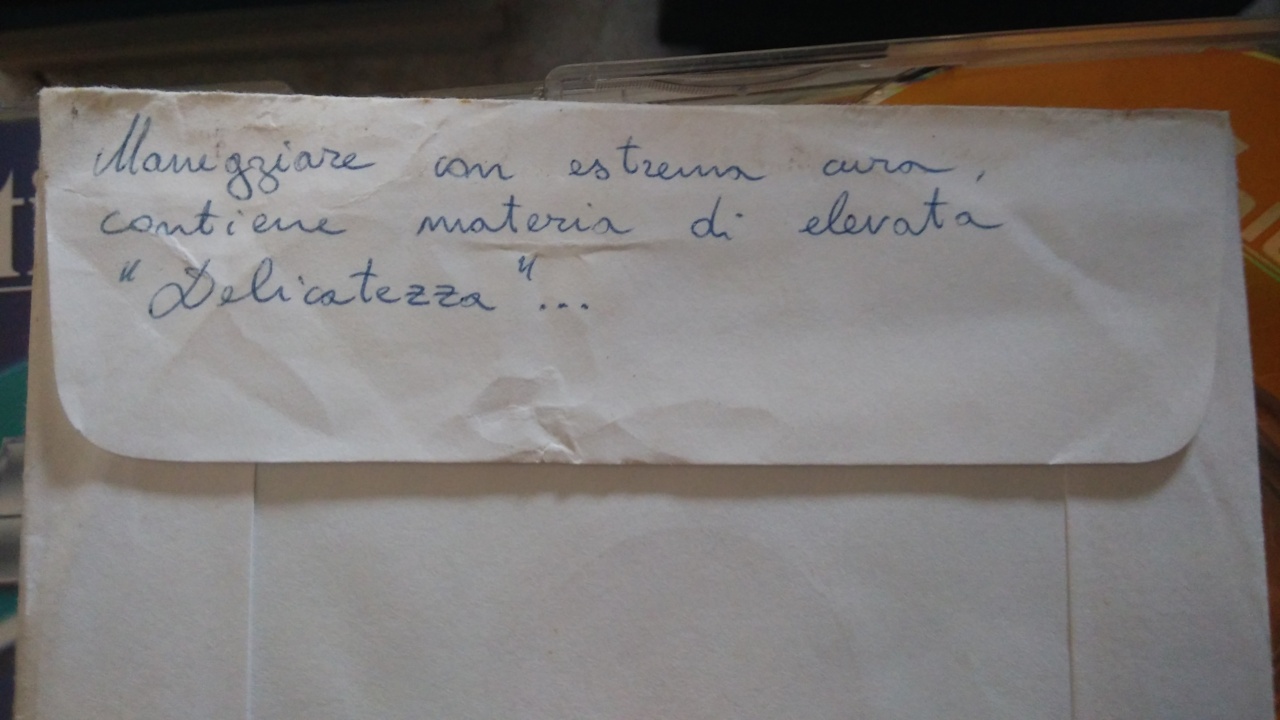 Maneggiare con estrema cura,
contiene materia di elevata
"Delicatezza"...